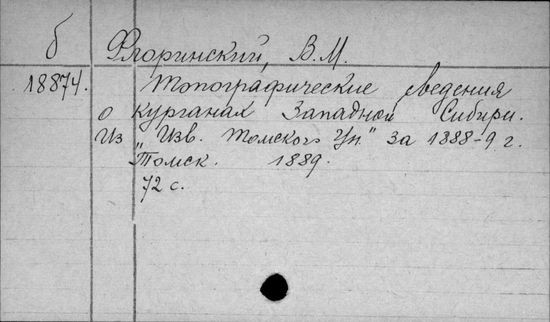 б Флоринский, В.М.
18874. Топографические сведения
о курганах Западной Сибири.
Из „Изв. Томского Ун." за 1888-9 г.
Томск. 1889.
72 с.